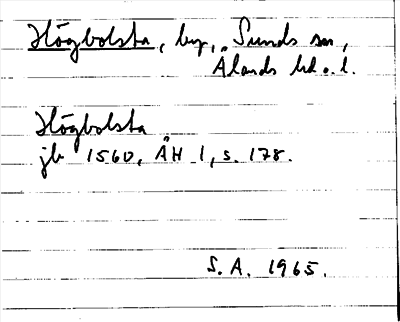 Högbolsta, by, Sunds sn,
Ålands hd o. l.
Högbolsta
jb 1560, ÅH 1, s. 178.
S. A. 1965.